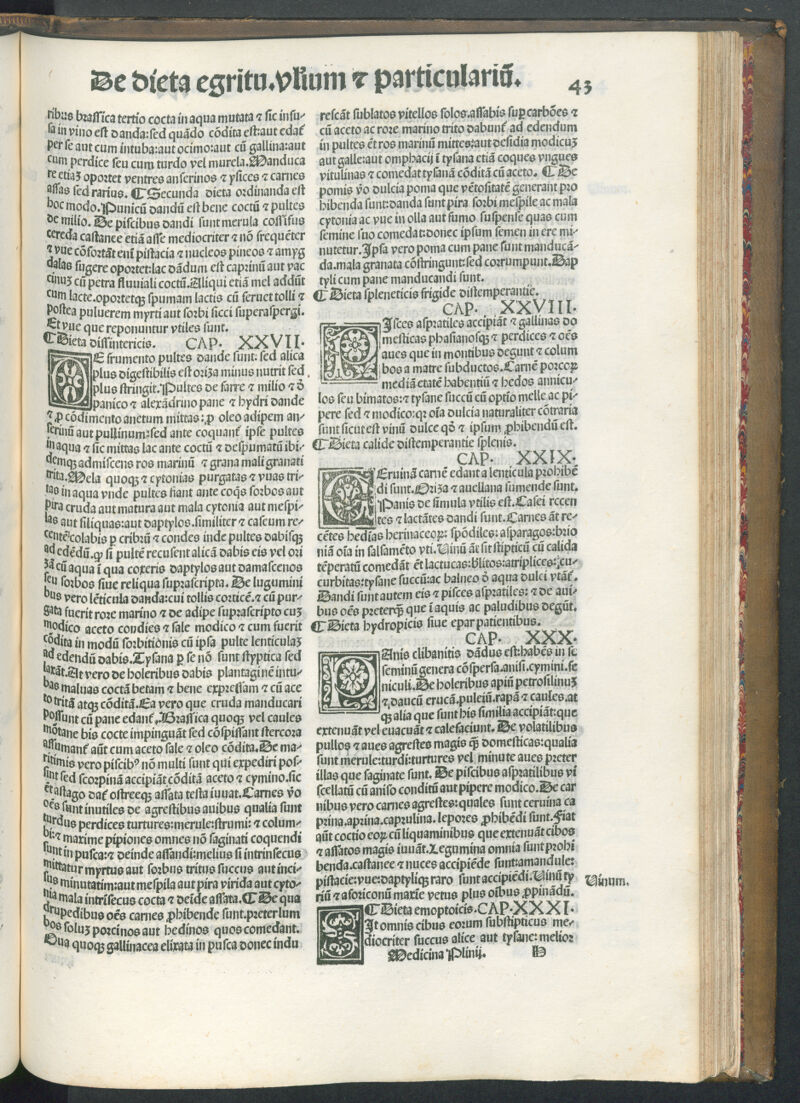 De dieta egritu. vłium ⁊ particulariū. 43
ribus brassica tertio cocta in aqua mutata ⁊ sic infu-
sa in vino est danda: sed quādo cōdita est: aut edat̄
per se aut cum intuba: aut ocimo: aut cū gallina: aut
cum perdice seu cum turdo vel murela. Manduca
re etiaʒ oportet ventres anserinos ⁊ ysices ⁊ carnes
assas sed rarius. ¶ Secunda dieta ordinanda est
hoc modo. Punicū dandū est bene coctū ⁊ pultes
de milio. De piscibus dandi sunt merula cossifus
cereda castanee etiā asse mediocriter ⁊ nō frequēter
⁊ vue cōfortāt eni pistacia ⁊ nucleos pineos ⁊ amyg
dalas sugere oportet: lac dādum est caprinū aut vac
cinuʒ cū petra fluuiali coctū. Aliqui etiā mel addūt
cum lacte. oportetqʒ spumam lactis cū feruet tolli ⁊
postea puluerem myrti aut sorbi sicci superaspergi.
Et vue que reponuntur vtiles sunt.
¶ Dieta dissintericis. CAP. XXVII.
DE frumento pultes dande sunt: sed alica
plus digestibilis est oriʒa minus nutrit sed
plus stringit. Pultes de farre ⁊ milio ⁊ ō
panico ⁊ alexādrino pane ⁊ hydri dande
⁊ ꝓ cōdimento anetum mittas: ꝓ oleo adipem an-
serinū aut pullinum: sed ante coquant̄ ipse pultes
in aqua ⁊ sic mittas lac ante coctū ⁊ despumatū ibi-
demqʒ admiscens ros marinū ⁊ grana mali granati
trita. Mela quoqʒ ⁊ cytonias purgatas ⁊ vuas tri-
tas in aqua vnde pultes fiant ante coq̄s sorbos aut
pira cruda aut matura aut mala cytonia aut mespi-
las aut siliquas: aut daptylos. similiter ⁊ caseum re-
centē colabis ꝑ cribrū ⁊ condes inde pultes dabisqʒ
ad edēdū. ꝙ si pultē recusent alicā dabis eis vel ori
ʒā cū aqua ī qua coxeris daptylos aut damascenos
seu sorbos siue reliqua suprascripta. De lugumini
bus vero lēticula danda: cui tollis corticē. ⁊ cū pur-
gata fuerit rore marino ⁊ de adipe suprascripto cuʒ
modico aceto condies ⁊ sale modico ⁊ cum fuerit
cōdita in modū sorbitionis cū ipsa pulte lenticulaʒ
ad edendū dabis. Tysana ꝑ se nō sunt styptica sed
laxāt. At vero de holeribus dabis plantaginē intu-
bas maluas coctā betam ⁊ bene expressam ⁊ cū ace
to tritā atqʒ cōditā. Ea vero que cruda manducari
possunt cū pane edant̄. Brassica quoqʒ vel caules
mōtane bis cocte impinguāt sed cōspissant stercora
assumant̄ aūt cum aceto sale ⁊ oleo cōdita. De ma-
ritimis vero piscibꝰ nō multi sunt qui expediri pos-
sint sed scorpinā accipiāt cōditā aceto ⁊ cymino. sic
ēt astago dat̄ ostreeqʒ assata testa iuuat. Carnes v̄o
oēs sunt inutiles de agrestibus auibus qualia sunt
turdus perdices turtures: merule: strumi: ⁊ colum-
bi: ⁊ maxime pipiones omnes nō saginati coquendi
sunt in pusca: ⁊ deinde assandi: melius si intrinsecus
mittatur myrtus aut sorbus tritus succus aut inci-
sus minutatim: aut mespila aut pira virida aut cyto-
nia mala intrīsecus cocta ⁊ deīde assata. ¶ De qua
drupedibus oēs carnes ꝓhibende sunt. preter lum
bos soluʒ porcinos aut hedinos quos comedant.
Oua quoqʒ gallinacea elixata in pusca donec indu
rescāt sublatos vitellos solos. assabis suꝑ carbōes ⁊
cū aceto ac rore marino trito dabunt̄ ad edendum
in pultes ēt ros marinū mittes: aut desidia modicuʒ
aut galle: aut omphacij ī tysana etiā coques vngues
vitulinas ⁊ comedat tysanā cōditā cū aceto. ¶ De
pomis v̄o dulcia poma que vētositatē generant pro
hibenda sunt: danda sunt pira sorbi mespile ac mala
cytonia ac vue in olla aut fumo suspense quas cum
semine suo comedat: donec ipsum semen in ere mi-
nutetur. Ipsa vero poma cum pane sunt manducā-
da. mala granata cōstringunt: sed corrumpunt. Dap
tyli cum pane manducandi sunt.
¶ Dieta spleneticis frigide distemperantie.
CAP. XXVIII.
PIsces aspratiles accipiāt ⁊ gallinas do
mesticas phasianosqʒ ⁊ perdices ⁊ oēs
aues que in montibus degunt ⁊ colum
bos a matre subductos. Carnē porcoꝝ
mediā etatē habentiū ⁊ hedos annicu-
los seu bimatos: ⁊ tysane succū cū optio melle ac pi-
pere sed ⁊ modico: qꝛ oīa dulcia naturaliter cōtraria
sunt sicut est vinū dulce qō ⁊ ipsum ꝓhibendū est.
¶ Dieta calide distemperantie splenis.
CAP. XXIX.
CEruinā carnē edant a lenticula prohibē
di sunt. Oriʒa ⁊ auellana sumende sunt.
Panis de simula vtilis est. Casei recen
tes ⁊ lactātes dandi sunt. Carnes āt re-
cētes hedīas herinaceoꝝ: spōdiles: asparagos: brio
niā oīa in salsamēto vti. Uinū āt sit stipticū cū calida
tēperatū comedāt ēt lactucas: blitos: atriplices: cu-
curbitas: tysane succū: ac balneo ō aqua dulci vtāt̄.
Dandi sunt autem eis ⁊ pisces aspratiles: ⁊ de aui-
bus oēs preterqʒ que ī aquis ac paludibus degūt.
¶ Dieta hydropicis siue epar patientibus.
CAP. XXX.
PAnis clibanitis dādus est: habēs in se
seminū genera cōspersa. anisi. cymini. fe
niculi. De holeribus apiū petrosilinuʒ
⁊ daucū erucā. puleiū. rapā ⁊ caules. at
qʒ alia que sunt his similia accipiāt: que
extenuāt vel euacuāt ⁊ calefaciunt. De volatilibus
pullos ⁊ aues agrestes magis qʒ domesticas: qualia
sunt merule: turdi: turtures vel minute aues preter
illas que saginate sunt. De piscibus aspratilibus vi
scellatū cū aniso conditū aut pipere modico. De car
nibus vero carnes agrestes: quales sunt ceruina ca
prina. aprina. caprulina. lepores ꝓhibēdi sunt. Fiat
aūt coctio eoꝝ cū liquaminibus que extenuāt cibos
⁊ assatos magis iuuāt. Legumina omnia sunt prohi
benda. castanee ⁊ nuces accipiēde sunt: amandule:
pistacie: vue: daptyliqʒ raro sunt accipiēdi. Uinū ty
riū ⁊ asoriconū maxīe vetus plus oībus ꝓpinādū.
Uinum.
¶ Dieta emoptoicis. CAP. XXXI.
SIt omnis cibus eorum substipticus me-
diocriter succus alice aut tysane: melior
Medicina Plinij. H